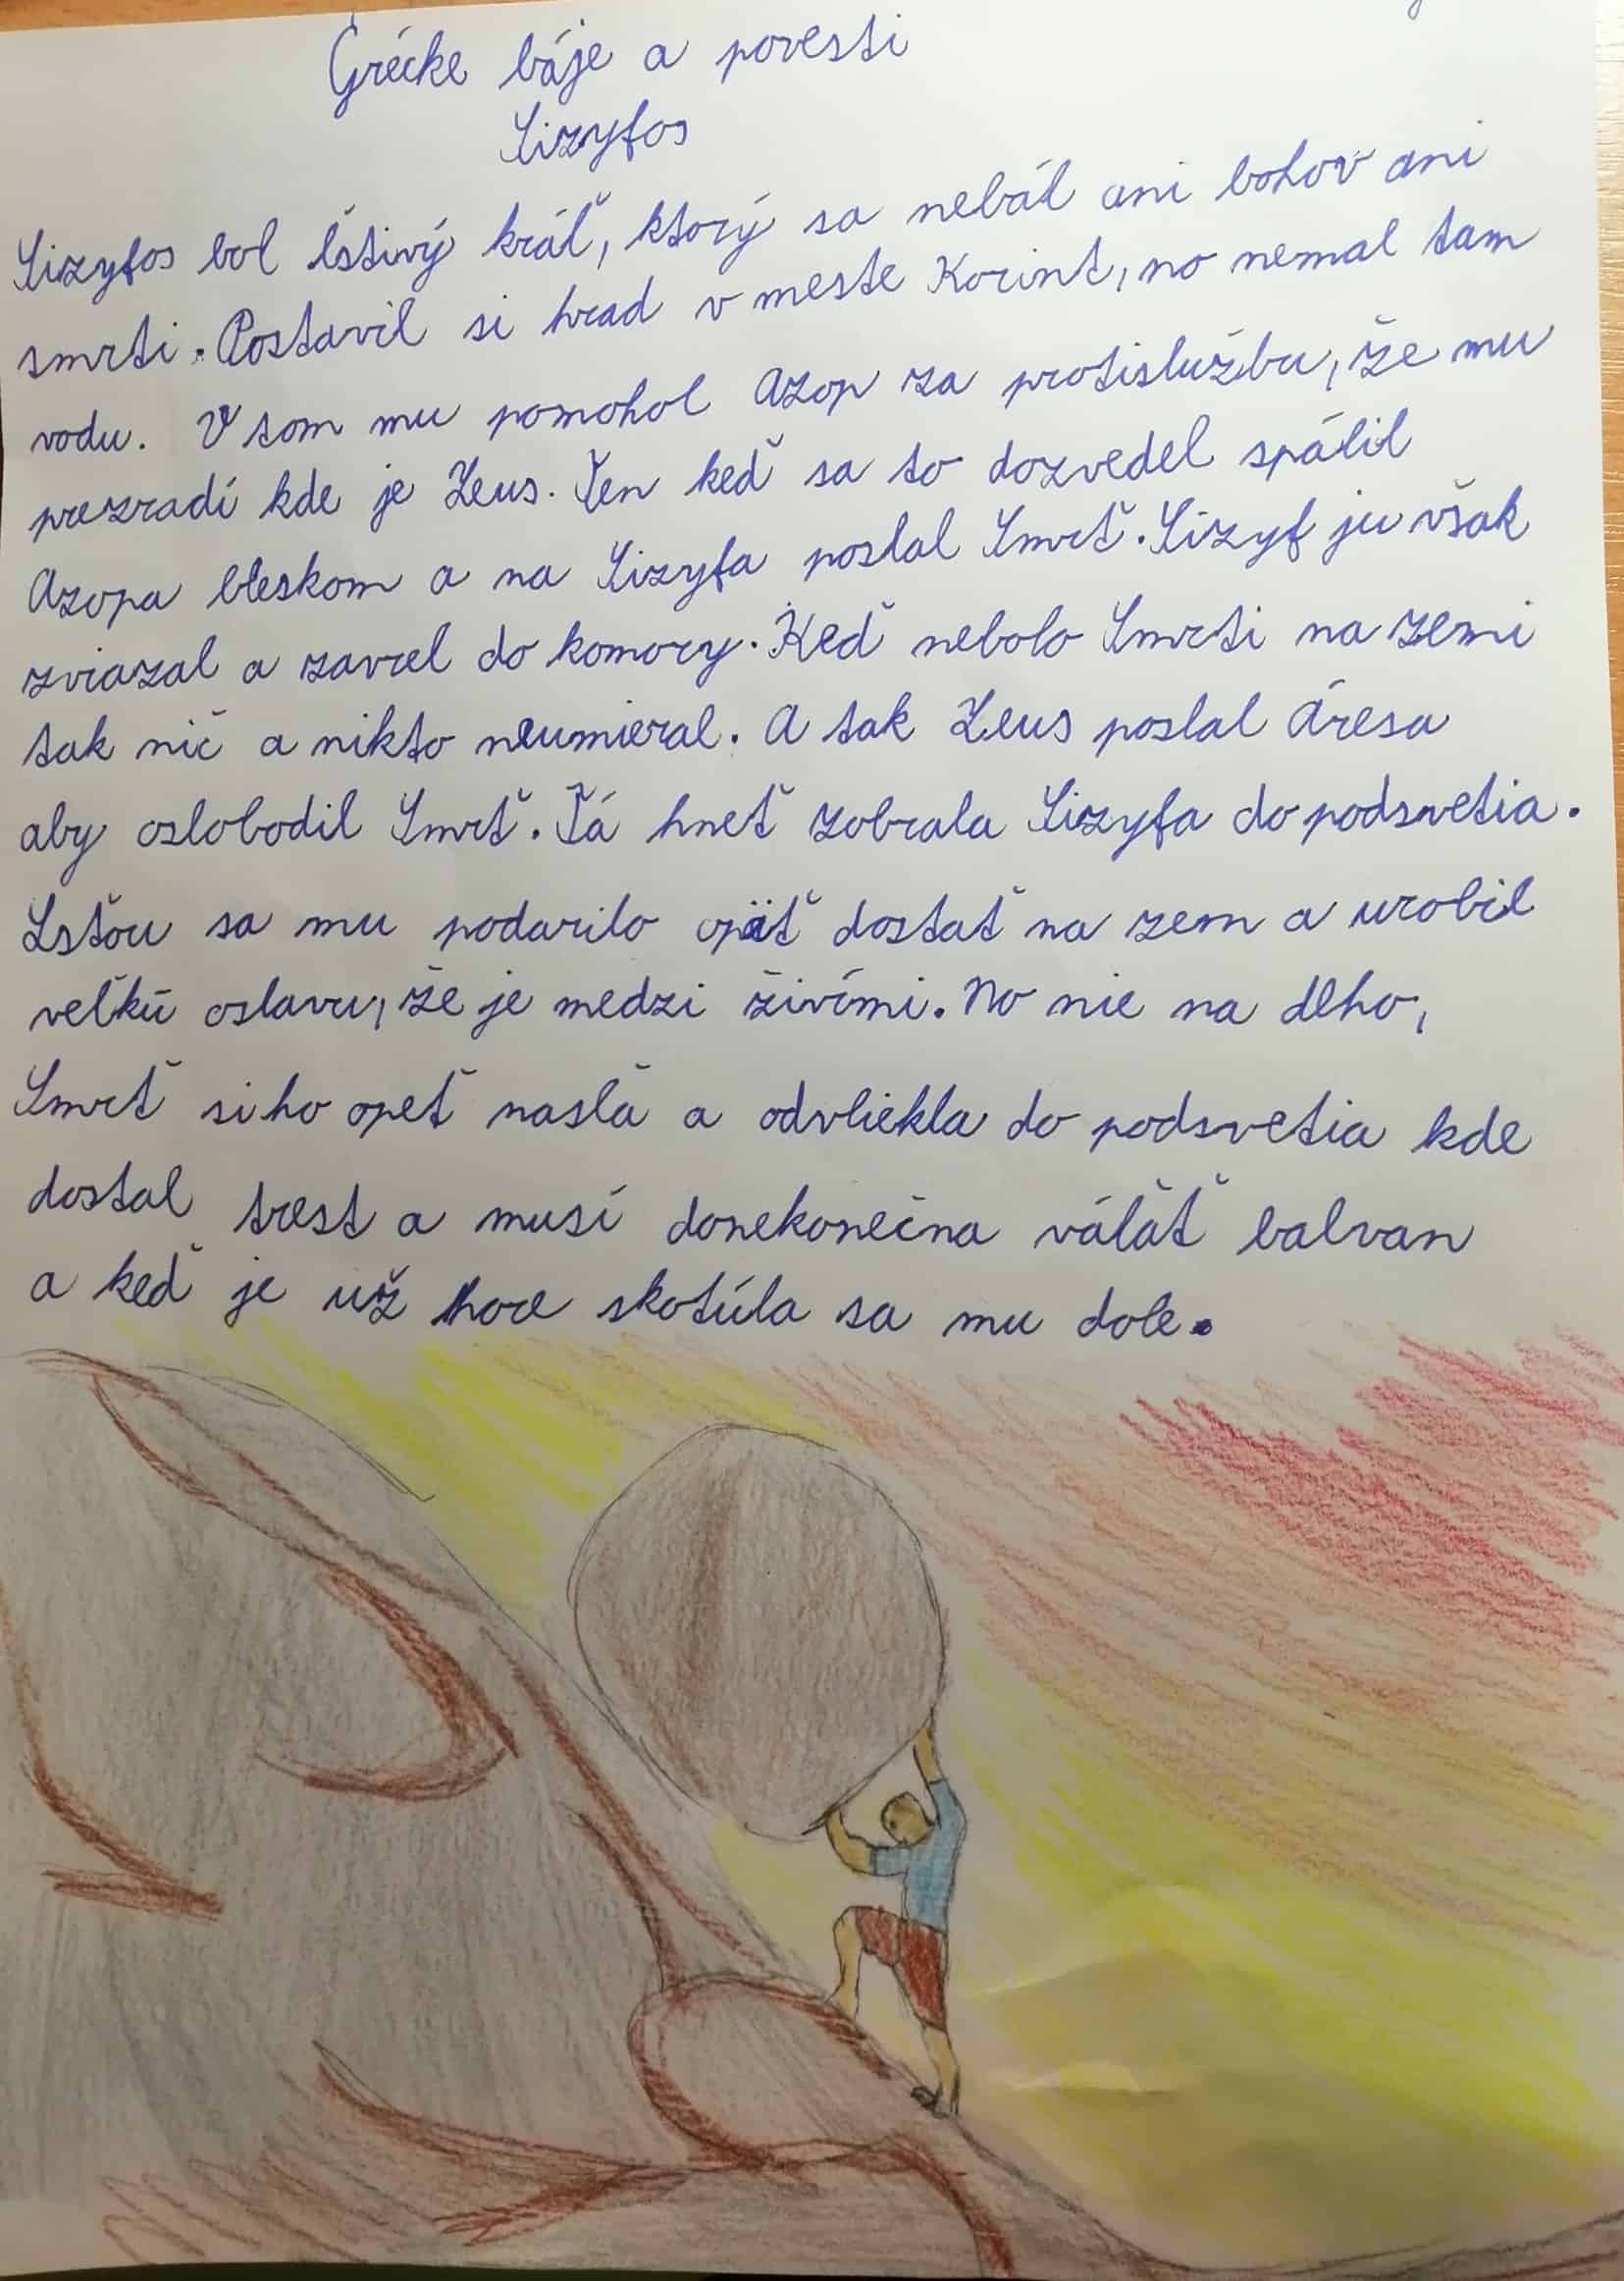 Grécke báje a povesti
Sizyfos
Sizyfos bol ľstivý kráľ, ktorý sa nebál ani bohov ani
smrti. Postavil si hrad v meste Korint, no nemal tam
vodu. V tom mu pomohol Azop za protislužbu, že mu
prezradí kde je Zeus. Ten keď sa to dozvedel spálil
Azopa bleskom a na Sizyfa poslal Smrť. Sizyf ju však
zviazal a zavrel do komory. Keď nebolo Smrti na zemi
tak nič a nikto neumieral. A tak Zeus poslal Áresa
aby oslobodil Smrť. Tá hneť zobrala Sizyfa do podsvetia.
Lsťou sa mu podarilo opäť dostať na zem a urobil
veľkú oslavu, že je medzi živími. No nie na dlho,
Smrť si ho opeť našla a odvliekla do podsvetia kde
dostal trest a musí donekonečna váľať balvan
a keď je už hore skotúla sa mu dole.